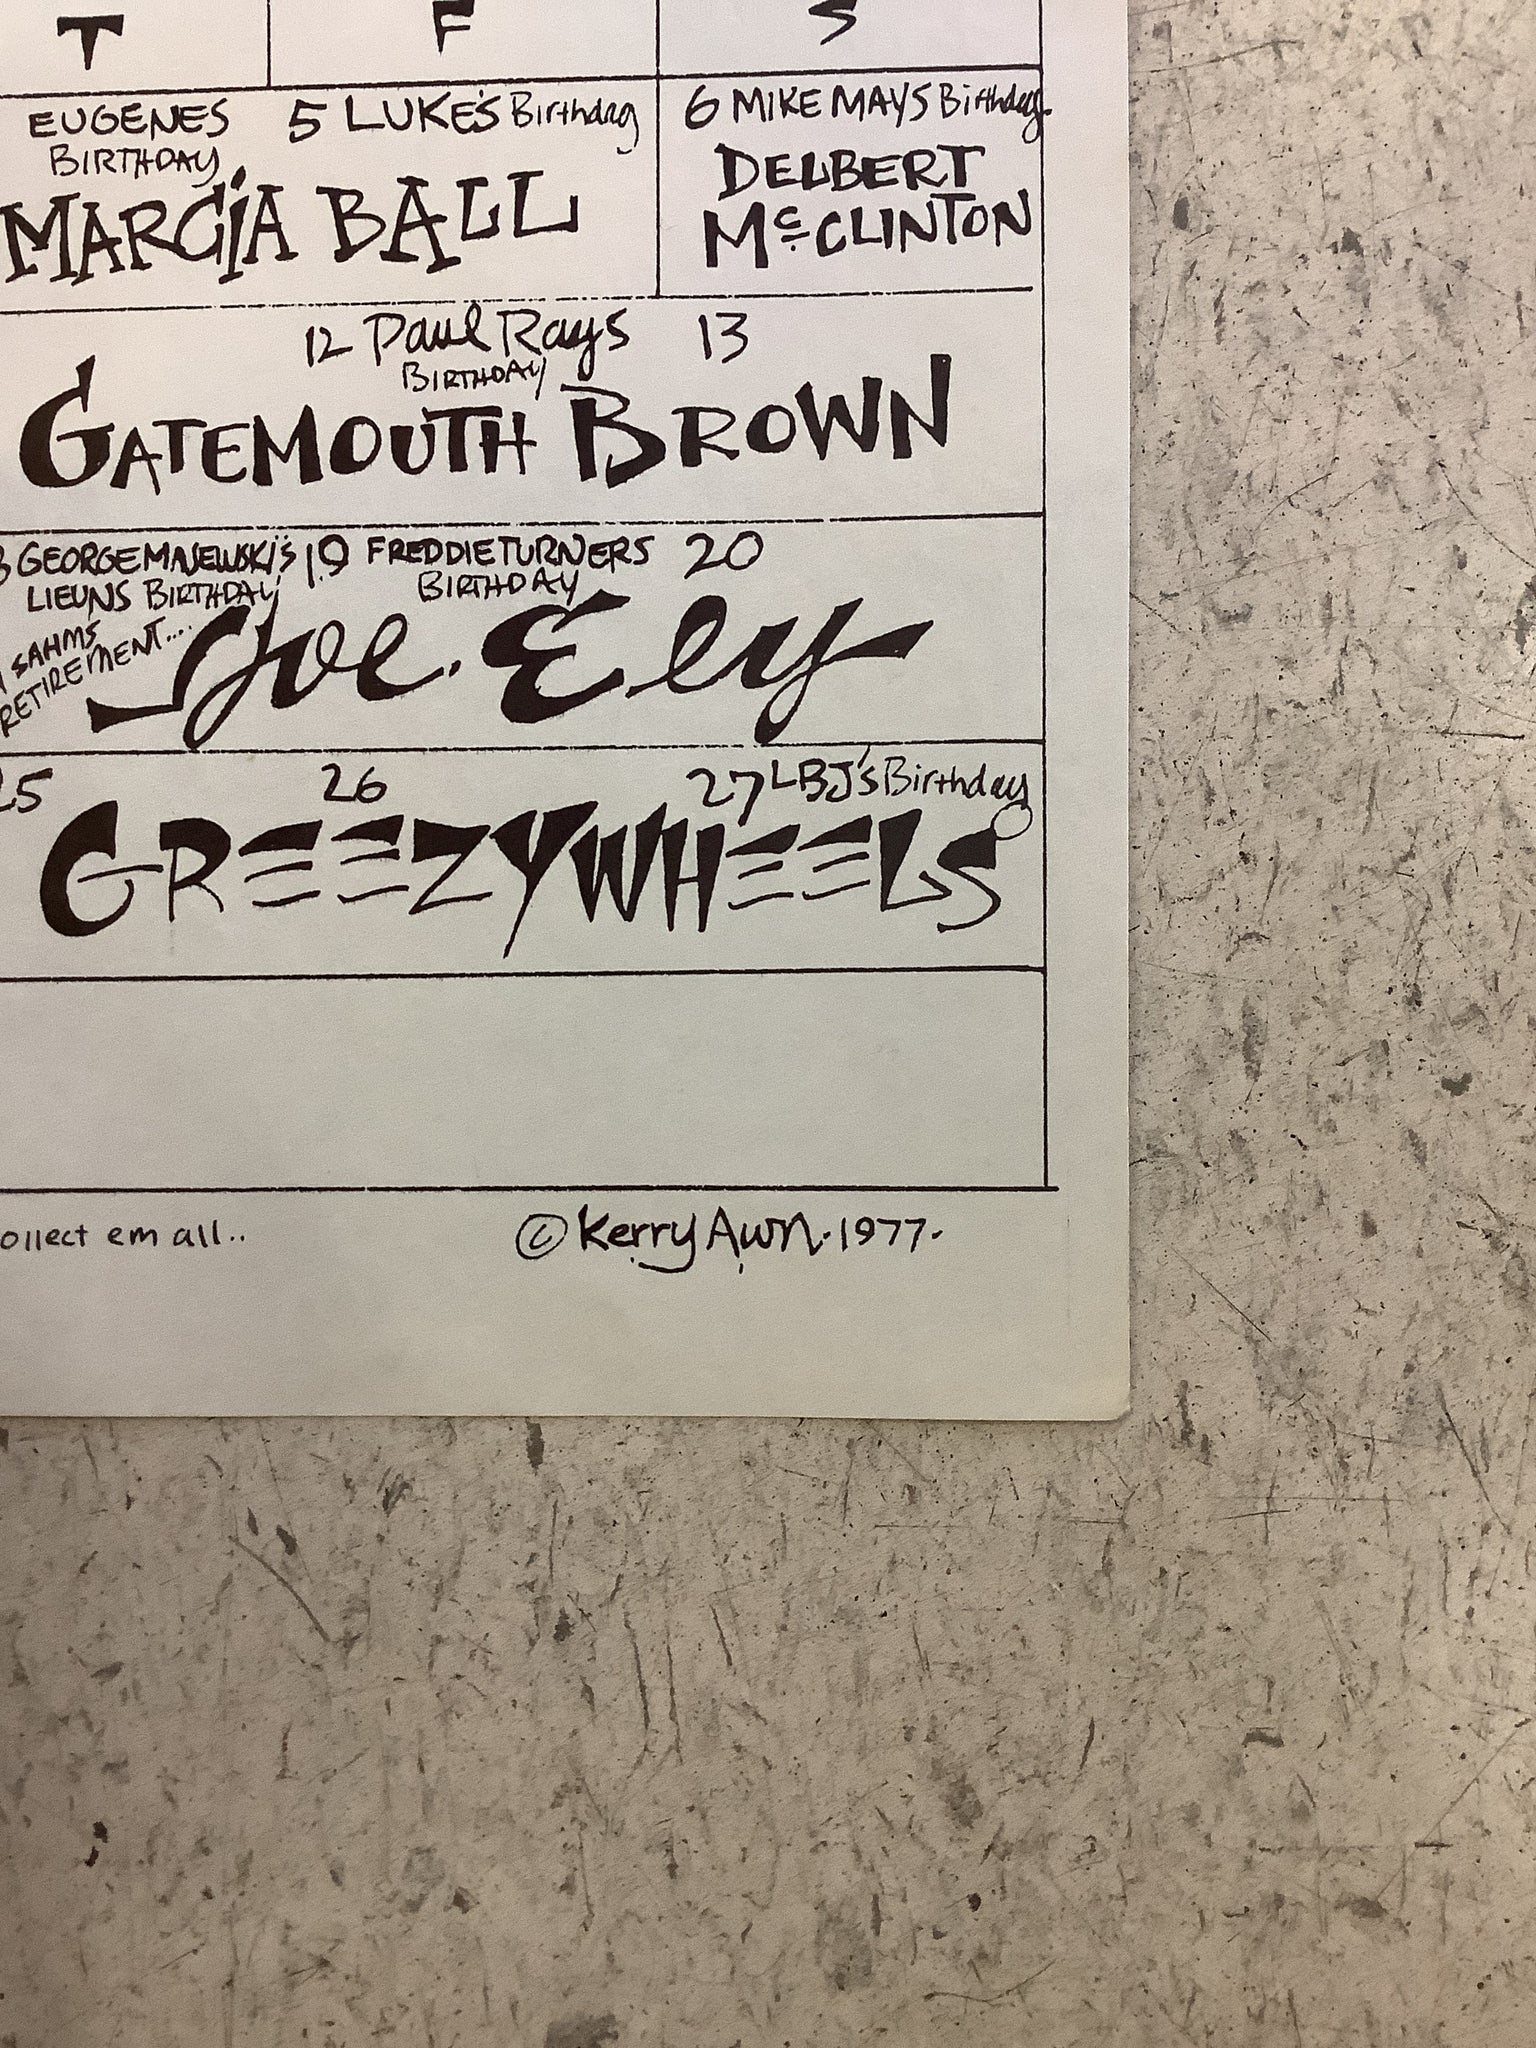 T F S
EUGENES
BIRTHDAY
5 LUKE'S Birthday
MARCIA BALL
6 MIKE MAYS Birthday.
DELBERT
McCLINTON
12 Paul Rays
BIRTHDAY
13
GATEMOUTH BROWN
GEORGE MAJEWSKI'S
LIEUNS BIRTHDAY
SAHMS
RETIREMENT....
19 FREDDIE TURNERS
BIRTHDAY
20
Joe Ely
25 26 27 LBJ's Birthday
GREEZY WHEELS
ollect em all..
© Kerry Awn. 1977.